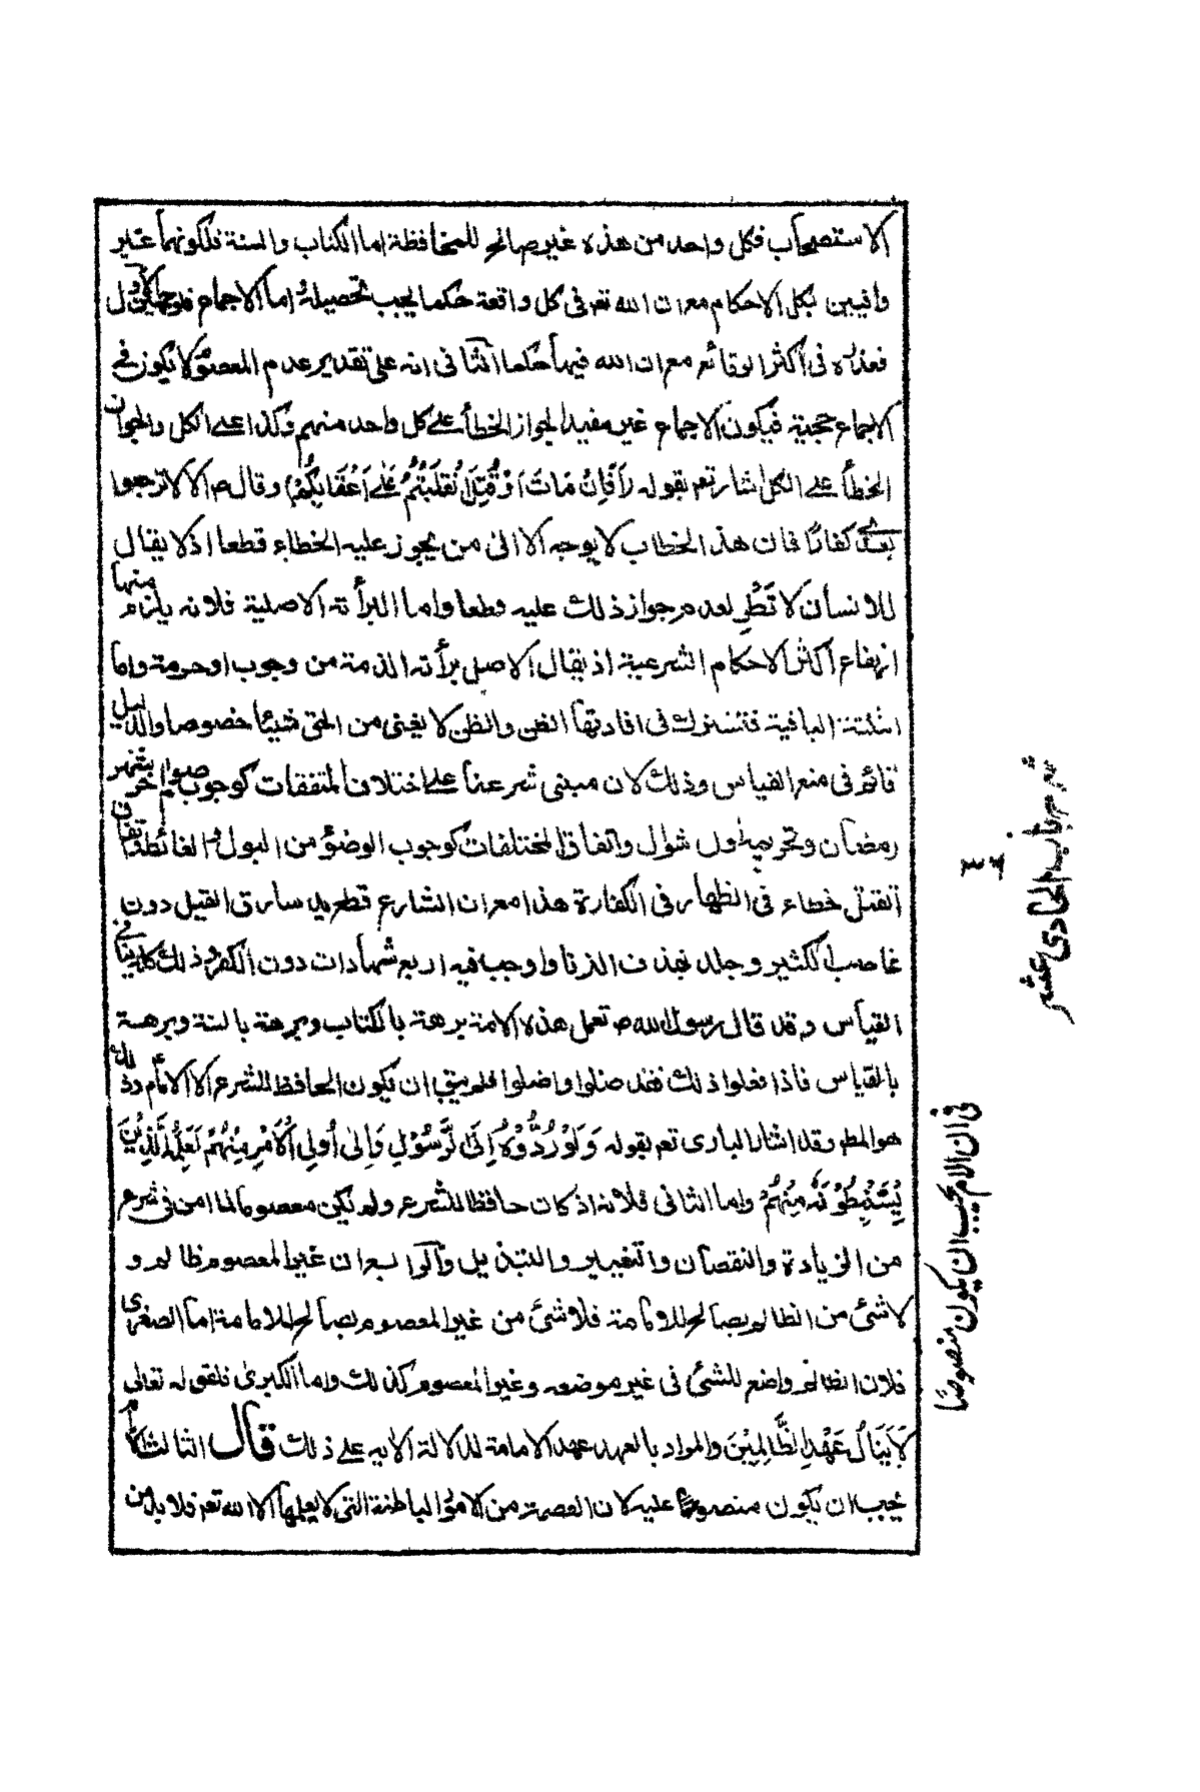 الاستصحاب فكل واحد من هذه غير صالح للمحافظة اما الكتاب والسنة فلكونهما غير
وافيين بكل الاحكام مع ان الله تعم فى كل واقعة حكما يجب تحصيله اما الاجماع فلوجهين الاول
تعذره فى اكثر الوقائع مع ان الله فيها حكما الثانى انه على تقدير عدم المعصوم لا يكون فى
الاجماع حجية فيكون الاجماع غير مفيد لجواز الخطأ على كل واحد منهم وكذا على الكل ولجواز
الخطأ على الكل اشار تعم بقوله (أَفَإِنْ مَاتَ أَوْ قُتِلَ انْقَلَبْتُمْ عَلَى أَعْقَابِكُمْ) وقال ص الا لا ترجعوا
بعدى كفارًا فان هذا الخطاب لا يوجه الا الى من يجوز عليه الخطاء قطعا اذ لا يقال
للانسان لا تَطِر لعدم جواز ذلك عليه قطعا واما البرأته الاصلية فلانه يلزم منها
ارتفاع اكثر الاحكام الشرعية اذ يقال الاصل برأته الذمة من وجوب او حرمة واما
الثلثة الباقية فتشترك فى افادتها الظن والظن لا يغنى من الحق شيئا خصوصا والدليل
قائم فى منع القياس وذلك لان مبنى شرعنا على اختلاف المتفقات كوجوب صوم اخر شهر
رمضان وتحريم اول شوال واتفاق المختلفات كوجوب الوضؤ من البول والغائط واتفاق
القتل خطاء فى الظهار فى الكفارة هذا مع ان الشارع قطع يد سارق القليل دون
غاصب الكثير وجلد بقذف الزنا واوجب فيه اربع شهادات دون الكفر وذلك كله ينافى
القياس وقد قال رسول الله ص تعمل هذه الامة برهة بالكتاب وبرهة بالسنة وبرهة
بالقياس فاذا فعلوا ذلك فقد ضلوا واضلوا فلم يبق ان يكون الحافظ للشرع الا الامام وذلك
هو المطم وقد اشار البارى تعم بقوله وَلَوْ رُدُّوهُ إِلَى الرَّسُوْلِ وَإِلَى أُولِي الْأَمْرِ مِنْهُمْ لَعَلِمَهُ الَّذِيْنَ
يَسْتَنْبِطُوْنَهُ مِنْهُمْ واما الثانى فلانه اذ كان حافظا للشرع ولم يكن معصوما لما امن فى شرع
من الزيادة والنقصان والتغيير والتبديل والرابع ان غير المعصوم ظالم و
لا شئ من الظالم بصالح للامامة فلا شئ من غير المعصوم بصالح للامامة اما الصغرى
فلان الظالم واضع للشئ فى غير موضعه وغير المعصوم كذلك واما الكبرى فلقوله تعالى
لَا يَنَالُ عَهْدِي الظَّالِمِيْنَ والمراد بالعهد عهد الامامة لدلالة الايه على ذلك قال الثالث الامام
يجب ان يكون منصوصًا عليه لان العصمة من الامور الباطنة التى لا يعلمها الا الله تعم فلا بد من
شرح باب الحادى عشر
فى ان الامام يجب ان يكون منصوصًا